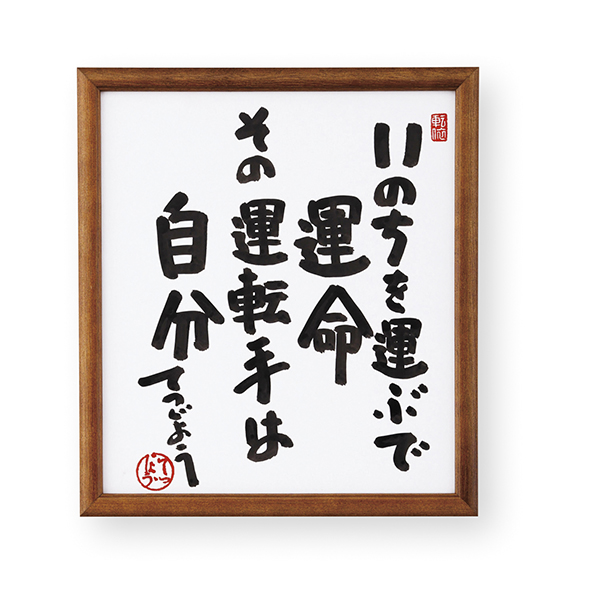 いのちを運ぶで
運命
その運転手は
自分
てつじょう
てつじょう